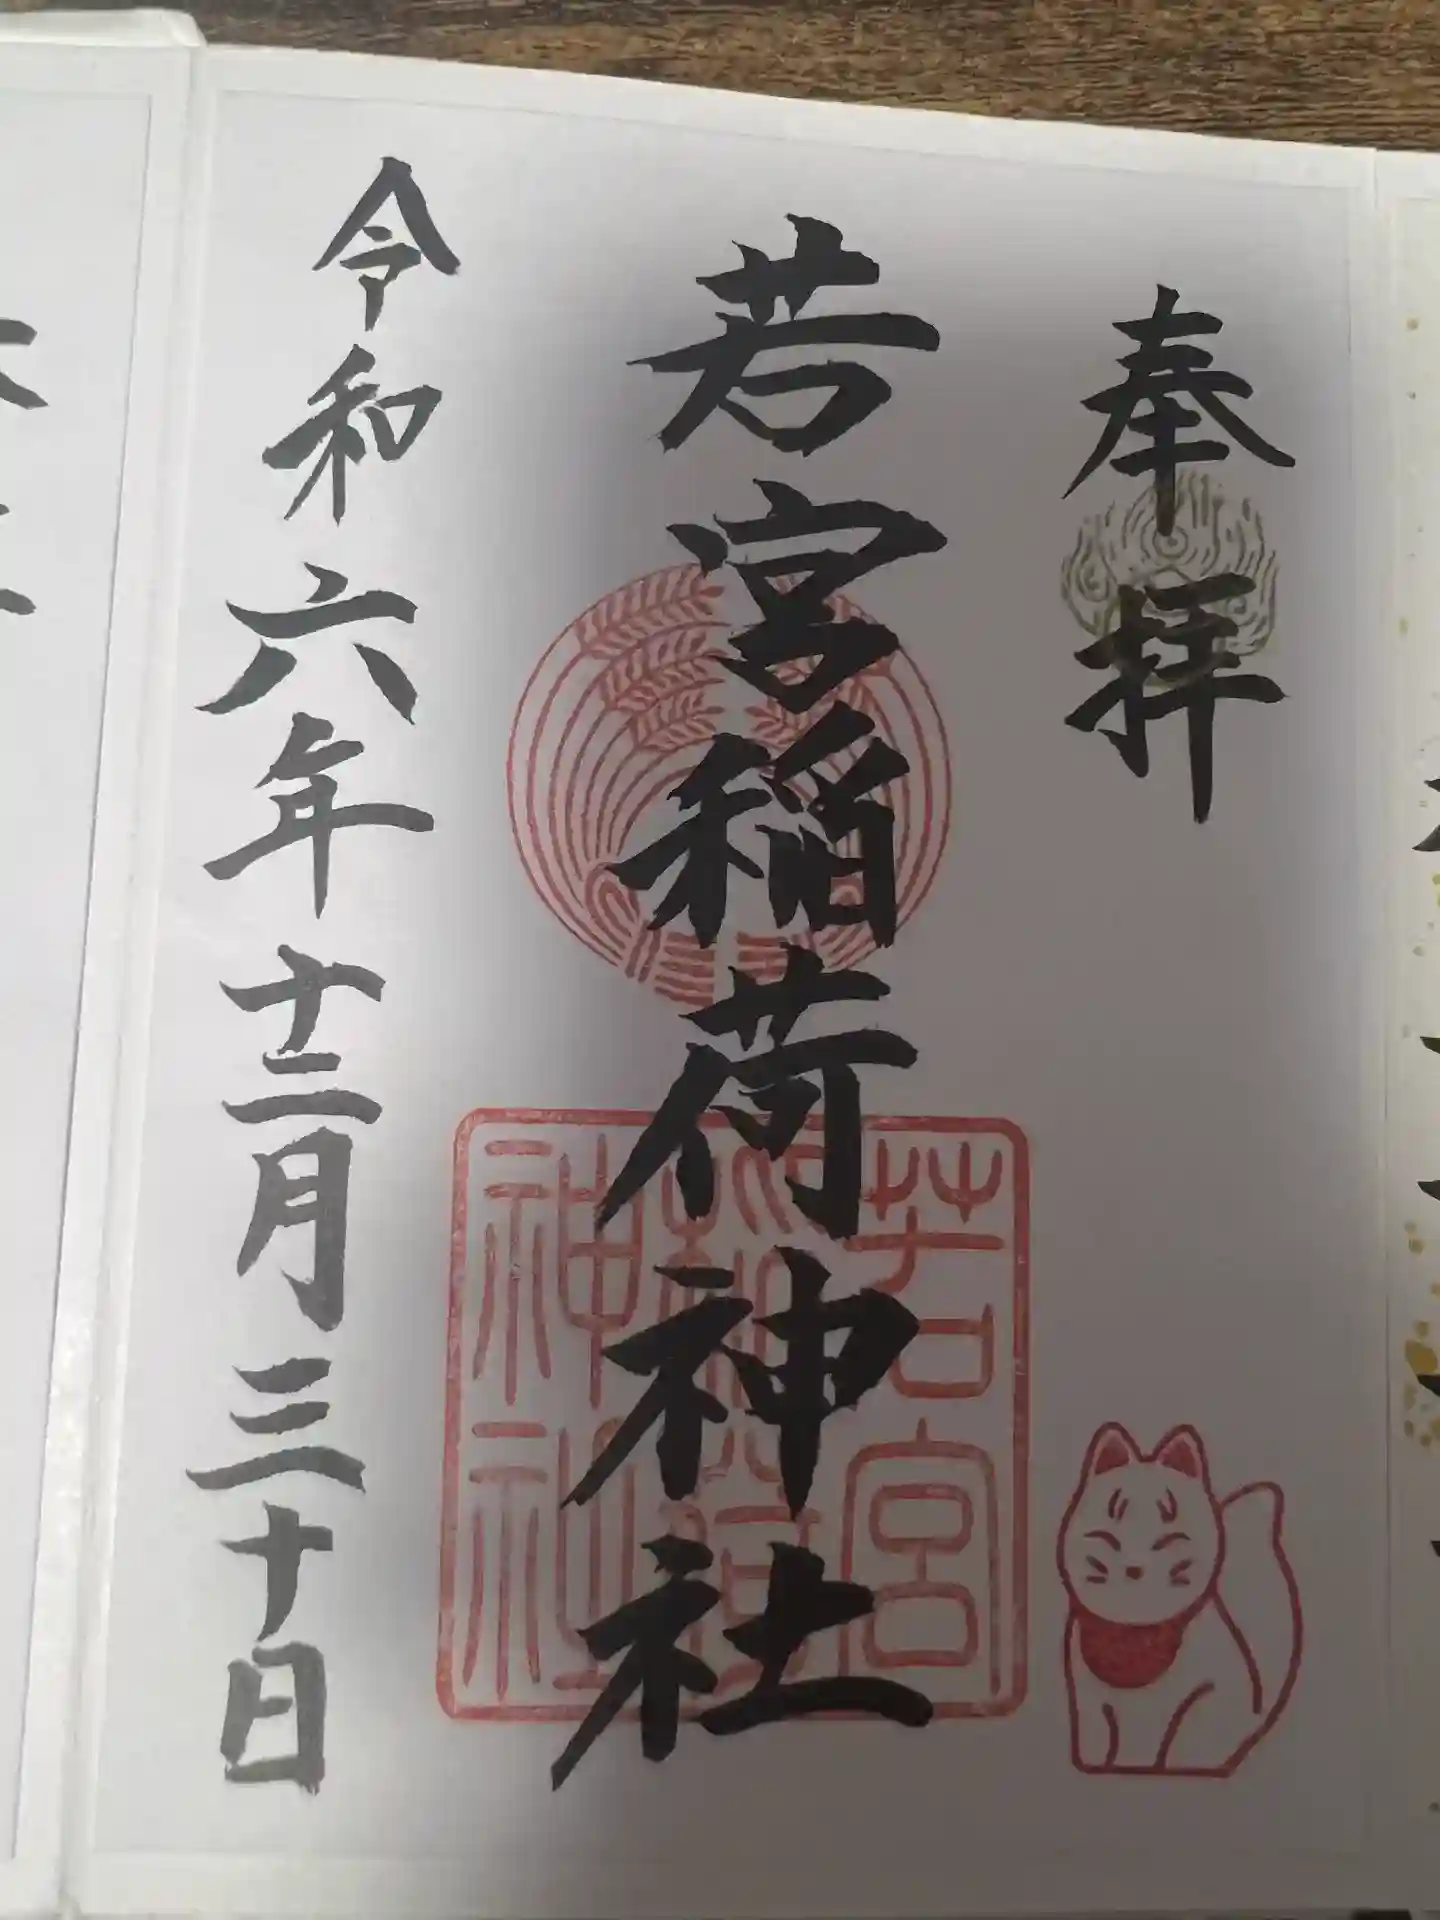 奉拝
若宮稲荷神社
若宮
稲荷
神社
令和六年十二月三十日